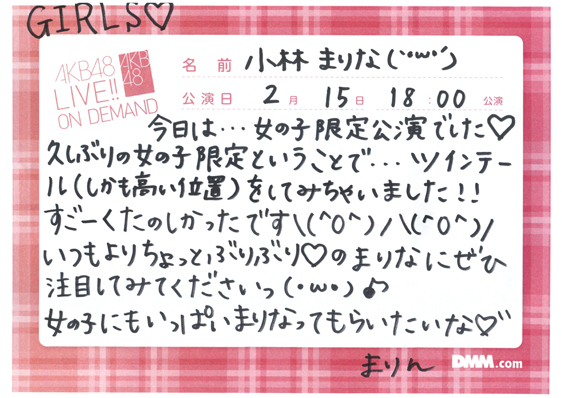 GIRLS♡
AKB48
LIVE!!
ON DEMAND
AKB
48
名前 小林まりな(´•ω•`)
公演日 2月 15日 18:00 公演
今日は…女の子限定公演でした♡
久しぶりの女の子限定ということで…ツインテー
ル(しかも高い位置)をしてみちゃいました!!
すごーくたのしかったです\(^O^)/\(^O^)/
いつもよりちょっとぶりぶり♡のまりなにぜひ
注目してみてくださいっ(•ω•)♪
女の子にもいっぱいまりなってもらいたいな♡
まりん
DMM.com